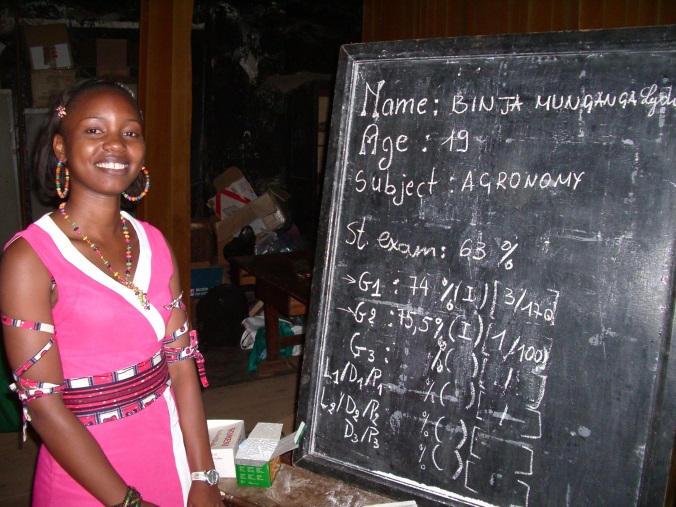 Name: BINJA MUNGANGA Lydi
Age: 19
Subject: AGRONOMY
St exam: 63 %
→G1: 74 % (I) [3/170]
→G2: 75,5% (I) [1/100]
G3: % ( ) [ / ]
L1/D1/P1 % ( ) [ / ]
L2/D2/P2 % ( ) [ ]
D3/P3 % ( ) [ ]